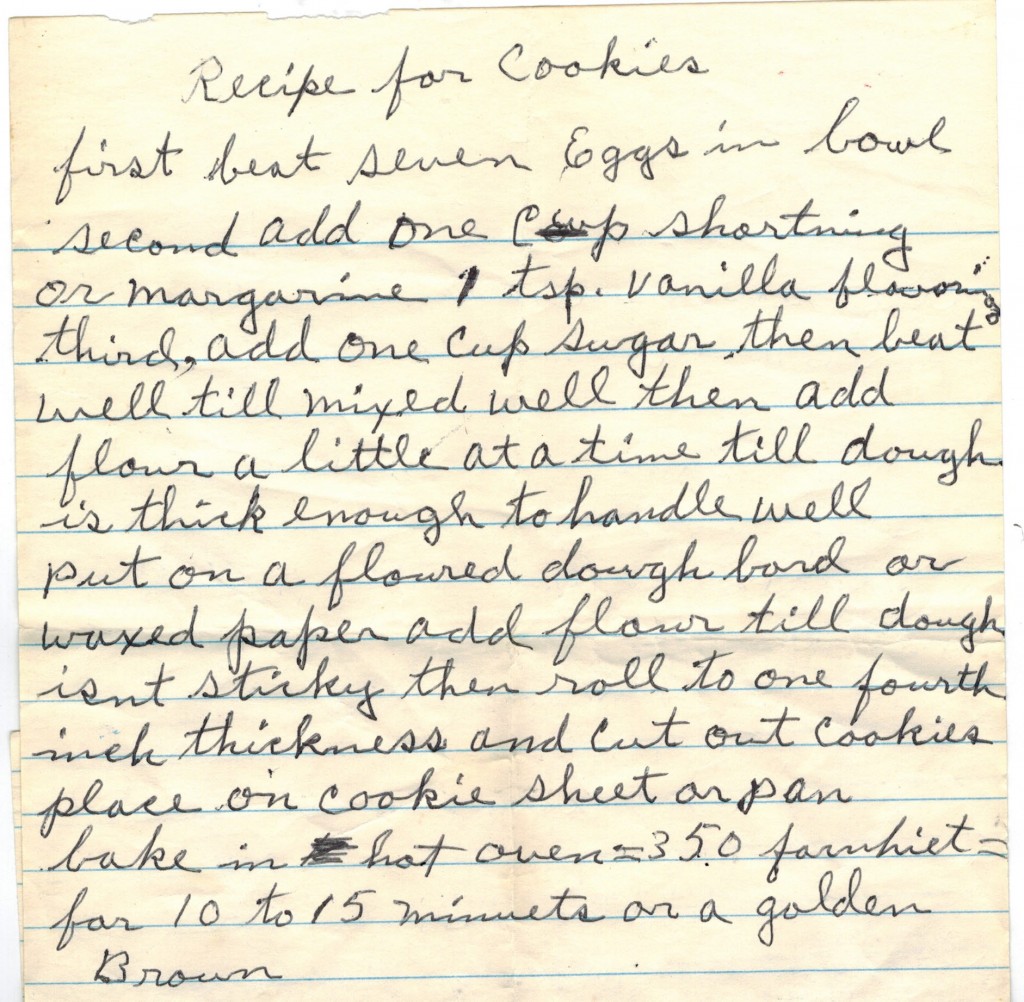 Recipe for Cookies
first beat seven Eggs in bowl
second add one Cup shortning
or margarine 1 tsp. vanilla flavoring
third, add one cup sugar then beat
well till mixed well then add
flour a little at a time till dough
is thick enough to handle well
put on a floured dough bord or
waxed paper add flour till dough
isnt sticky then roll to one fourth
inch thickness and cut out cookies
place on cookie sheet or pan
bake in hot oven = 350 farnhiet =
for 10 to 15 minuets or a golden
Brown